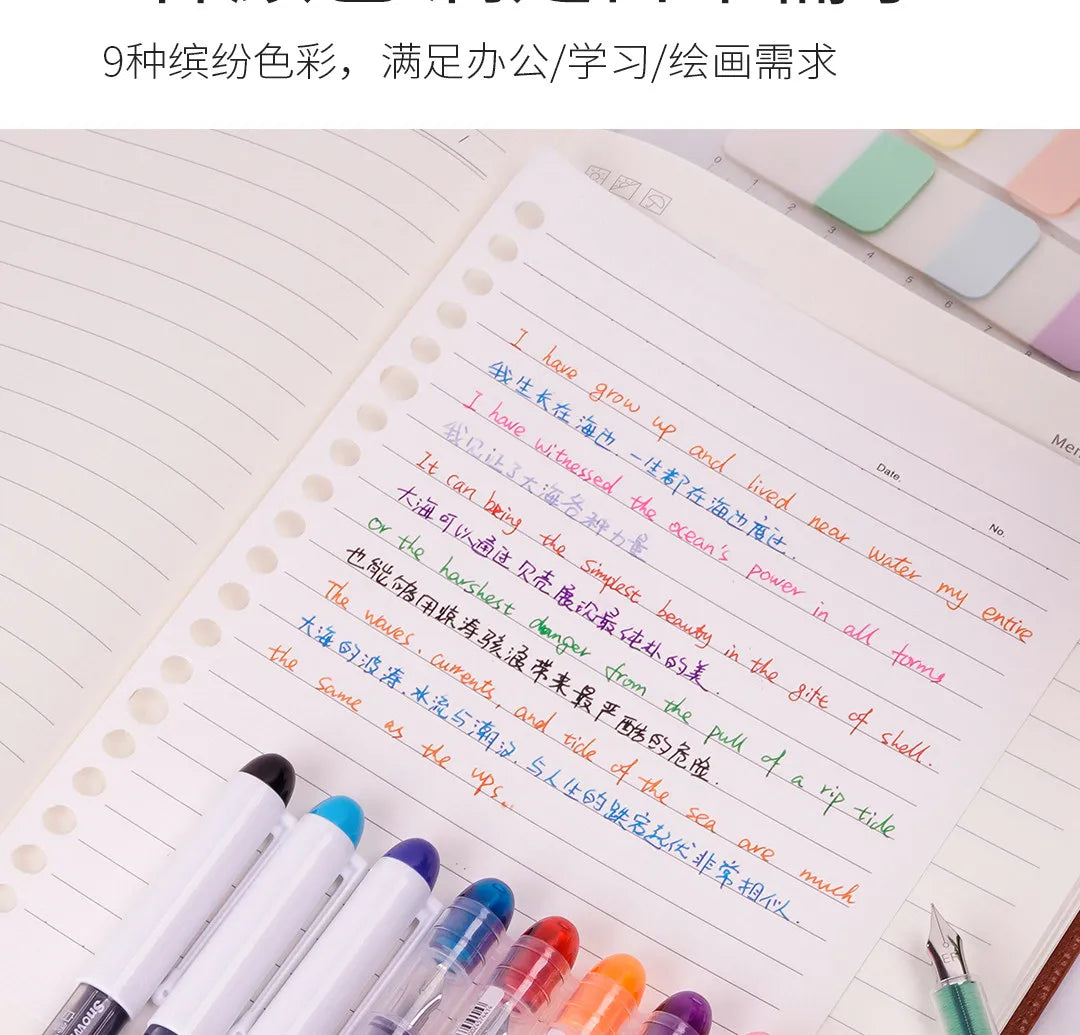 9种缤纷色彩，满足办公/学习/绘画需求
0 1 2 3 4 5 6 7 8
Date.
No.
I have grow up and lived near water my entire
我生长在海边 一生都在海边度过.
I have witnessed the ocean's power in all forms
我见证了大海各种力量
It can being the simplest beauty in the gift of shell.
大海可以通过贝壳展示最纯朴的美.
or the harshest danger from the pull of a rip tide
也能够用惊涛骇浪带来最严酷的危险.
The waves, currents, and tide of the sea are much
大海的波涛.水流与潮汐.与人生的跌宕起伏非常相似.
the same as the ups.
Snow